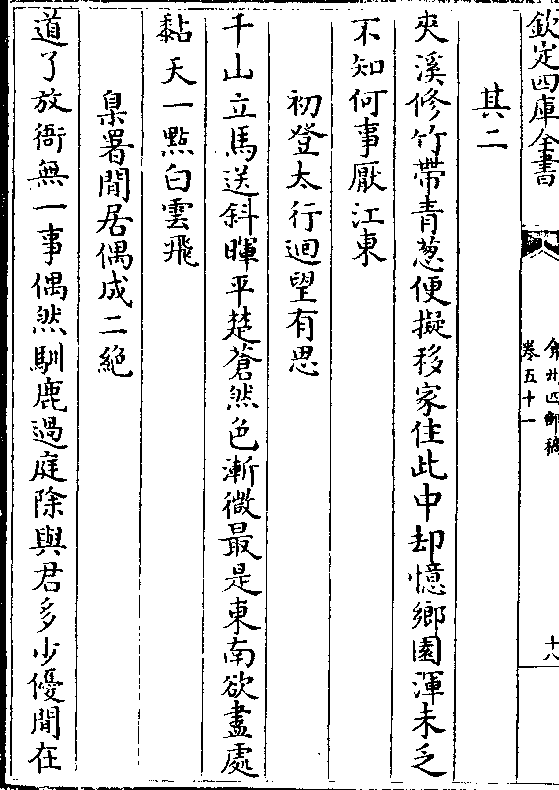 欽定四庫全書
弇州四部稿
卷五十一
十八
其二
夾溪修竹帶青葱便擬移家住此中却憶鄉園渾未乏
不知何事厭江東
初登太行迴望有思
千山立馬送斜暉平楚蒼然色漸微最是東南欲盡處
黏天一點白雲飛
臬署閒居偶成二絶
道了放衙無一事偶然馴鹿過庭除與君多少優閒在